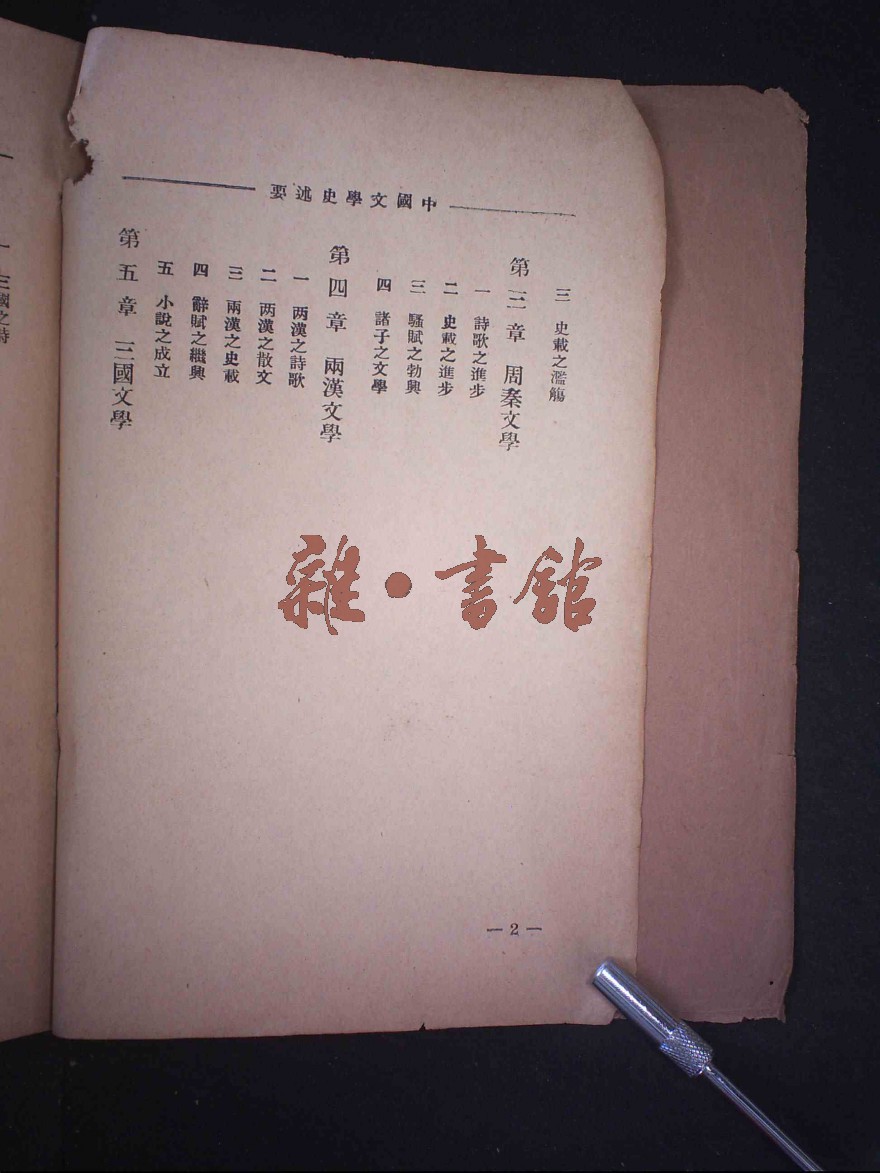 中國文學史述要
三 史載之濫觴
第三章 周秦文學
一 詩歌之進步
二 史載之進步
三 騷賦之勃興
四 諸子之文學
第四章 兩漢文學
一 两漢之詩歌
二 两漢之散文
三 兩漢之史載
四 辭賦之繼興
五 小說之成立
第五章 三國文學
一 三國之詩
雜·書館
—2—